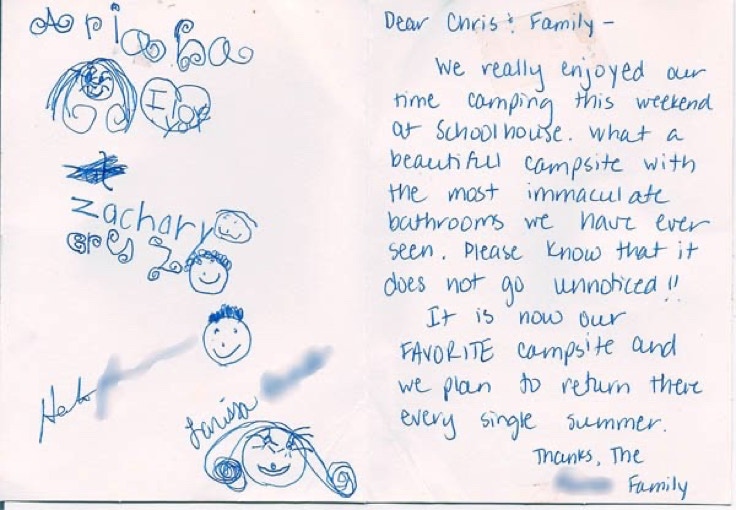 Ariana
I
Zachary
Larissa
Dear Chris & Family –
We really enjoyed our
time camping this weekend
at Schoolhouse. What a
beautiful campsite with
the most immaculate
bathrooms we have ever
seen. Please know that it
does not go unnoticed!!
It is now our
FAVORITE campsite and
we plan to return there
every single summer.
Thanks, The
Family